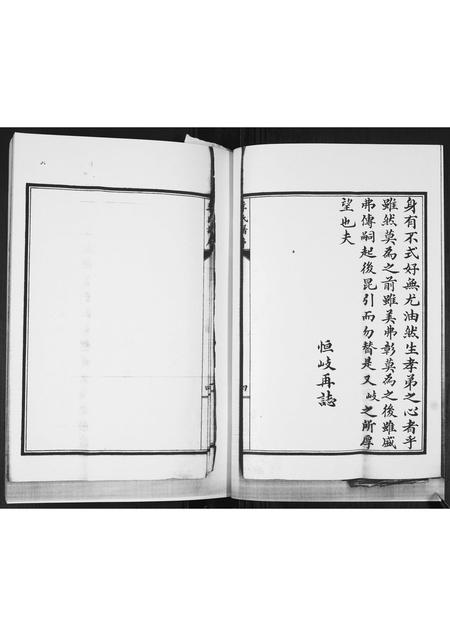 身有不式好無尤油然生孝弟之心者乎
雖然莫為之前雖美弗彰莫為之後雖盛
弗傳嗣起後昆引而勿替是又岐之所厚
望也夫
恒岐再誌